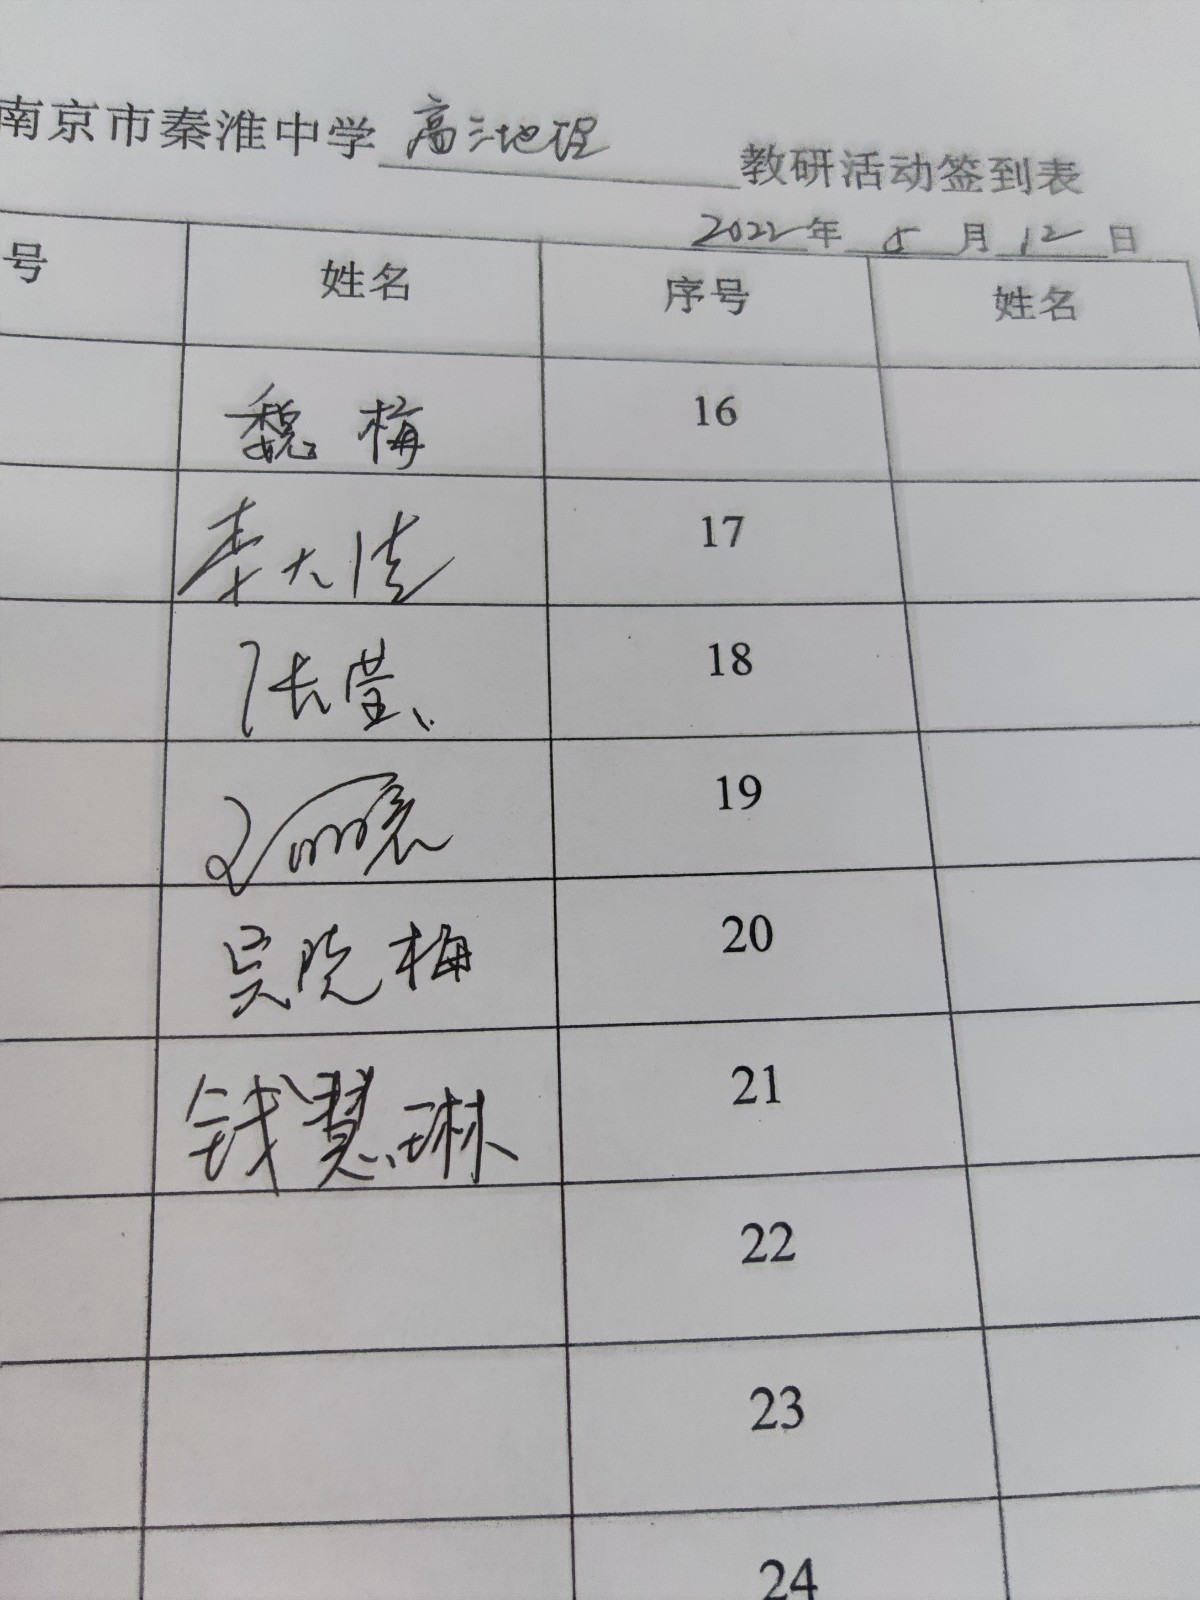 南京市秦淮中学 高三地理 教研活动签到表
2022年 5 月 12 日
号 姓名 序号 姓名
魏梅 16
李大清 17
张莹 18
19
吴晓梅 20
钱慧琳 21
22
23
24